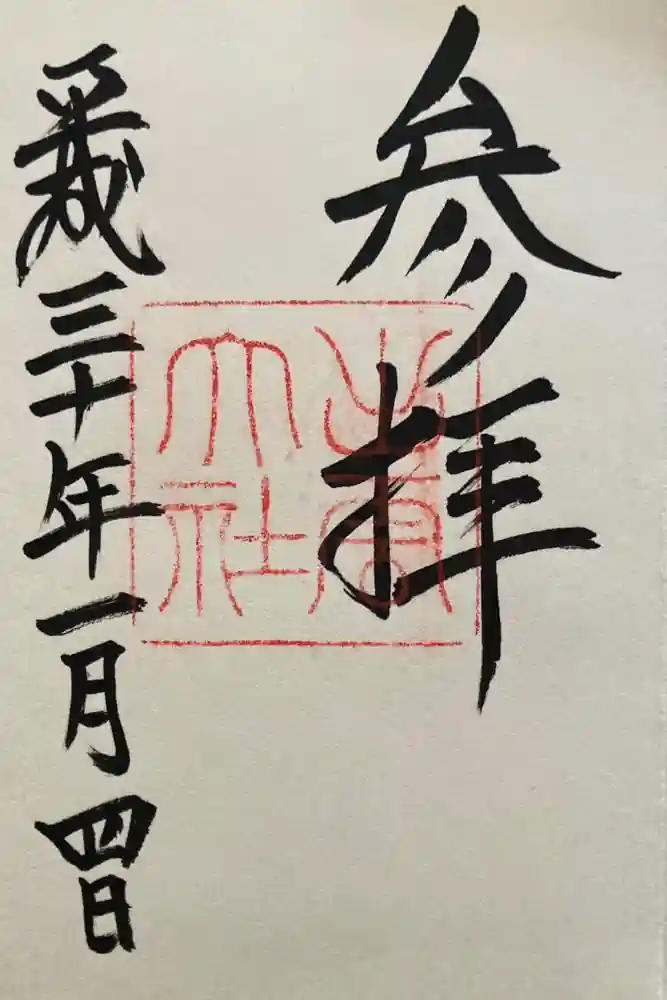 参拝
出雲大社
平成三十年一月四日